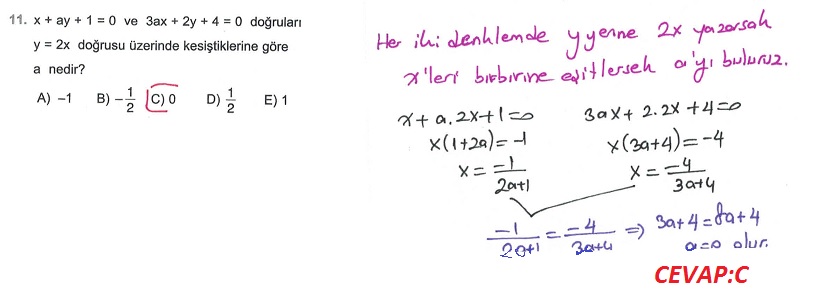 11. x + ay + 1 = 0 ve 3ax + 2y + 4 = 0 doğruları
y = 2x doğrusu üzerinde kesiştiklerine göre
a nedir?
A) –1 B) –1/2 C) 0 D) 1/2 E) 1
Her iki denklemde y yerine 2x yazarsak
x'leri birbirine eşitlersek a'yı buluruz.
x + a.2x+1=0 3ax + 2.2x +4=0
x(1+2a)=-1 x(3a+4)=-4
x = -1/2a+1 x = -4/3a+4
-1/2a+1 = -4/3a+4 ⇒ 3a+4=8a+4
a=0 olur.
CEVAP:C